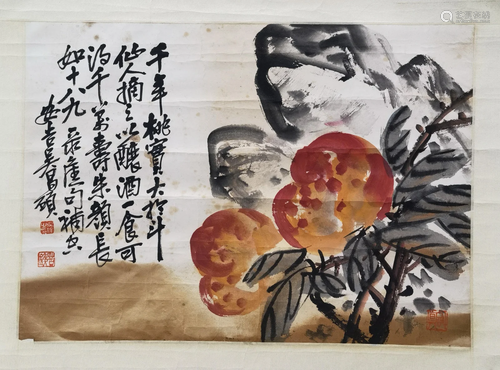 千年桃實大於斗
仙人摘之以釀酒一食可
得千萬壽朱顏長
如十八九
安吉吳昌碩